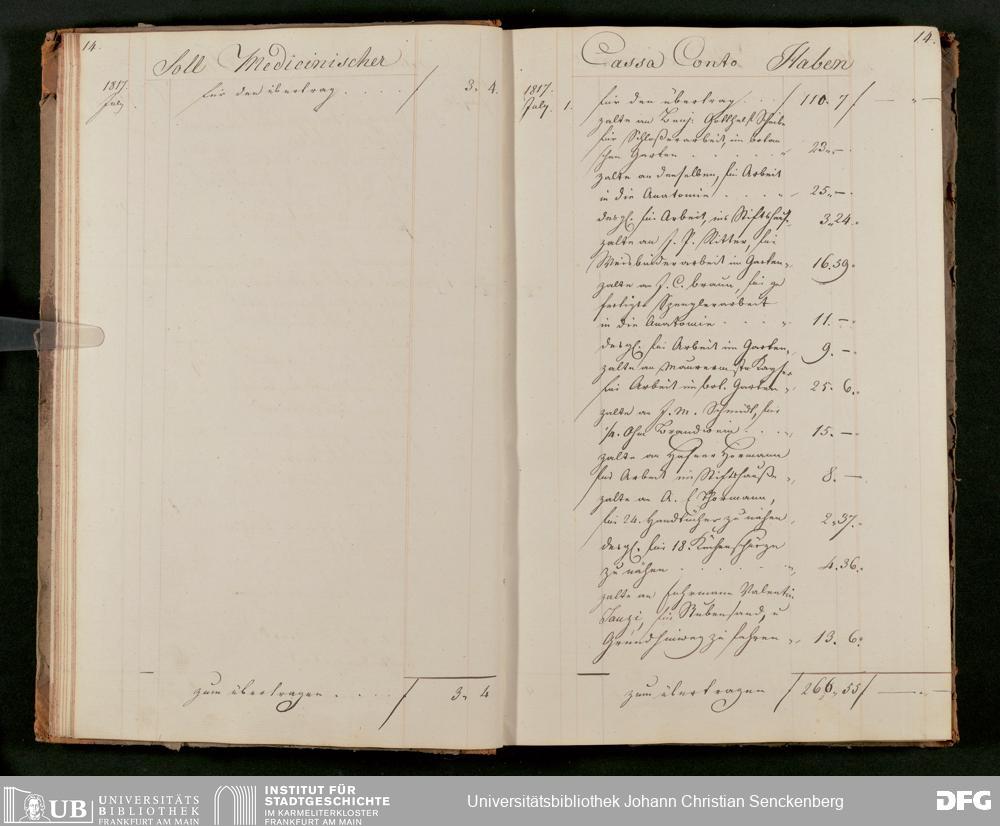 14.
Soll Medicinischer
1817
July
für den übertrag . . . . . f 3. 4.
zum übertragen . . . . . f 3. 4
14.
Cassa Conto Haben
1817.
July. 1.
für den übertrag . . . f 110. 7 f — " —
zalte an Benj. Gotthelf Scheibe
für Schlosserarbeit, im botan
schen Garten . . . . . "
zalte an denselben, für Arbeit
in die Anatomie . . . . " 25. —.
desgl. für Arbeit, ins Stiftshauß " 3. 24.
zalte an J. P. Ritter, für
Weisbinderarbeit im Garten " 16. 59.
zalte an J. C. Braun, für ge
fertigte Spenglerarbeit
in die Anatomie . . . . " 11. —.
desgl. für Arbeit im Garten " 9. —.
zalte an Maurermstr Kayser
für Arbeit im bot. Garten " 25. 6.
zalte an J. M. Schmidt, für
Ohm Brandwein . . . " 15. —.
zalte an Hafner Hormann
für Arbeit im Stiftshauße " 8. —
zalte an A. E Thormann,
für 24. Handtücher zu nähen " 2. 37.
desgl. für 18. Küchenschürze
zu nähen . . . . . . " 4. 36.
zalte an Fuhrmann Valentin
für Stubensand, u
Grund hinweg zu fahren " 13. 6.
zum übertragen f 266. 55 f — " —
UB UNIVERSITÄTS
BIBLIOTHEK
FRANKFURT AM MAIN
INSTITUT FÜR
STADTGESCHICHTE
IM KARMELITERKLOSTER
FRANKFURT AM MAIN
Universitätsbibliothek Johann Christian Senckenberg
DFG